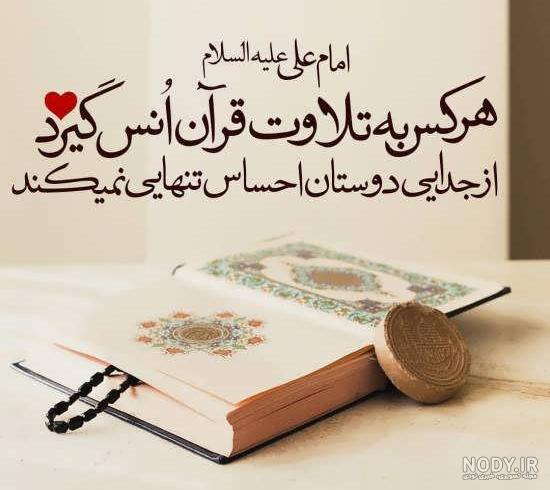 امام علی علیه السلام
هر کس به تلاوت قرآن اُنس گیرد
از جدایی دوستان احساس تنهایی نمیکند
NODY.IR
مجله تصویری، خبری نودی